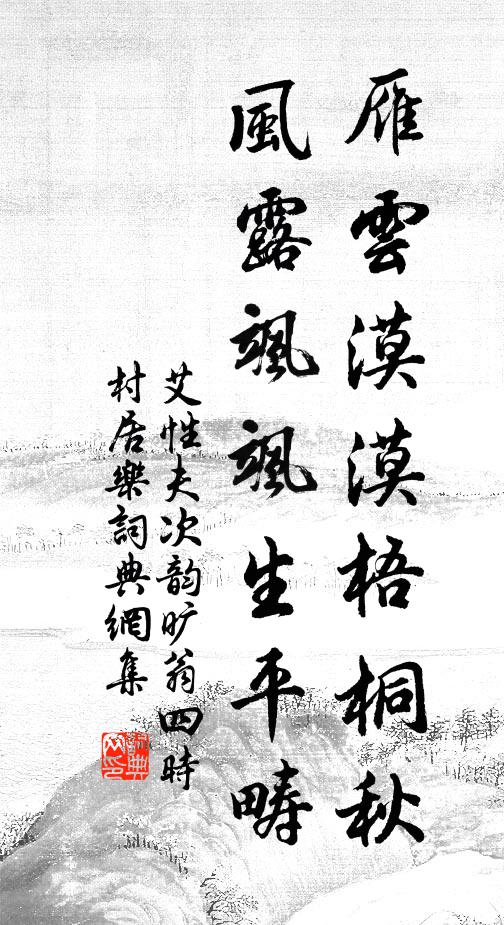 雁雲漠漠梧桐秋
風露颯颯生平疇
艾性夫次韵旷翁四時
村居樂詞典網集